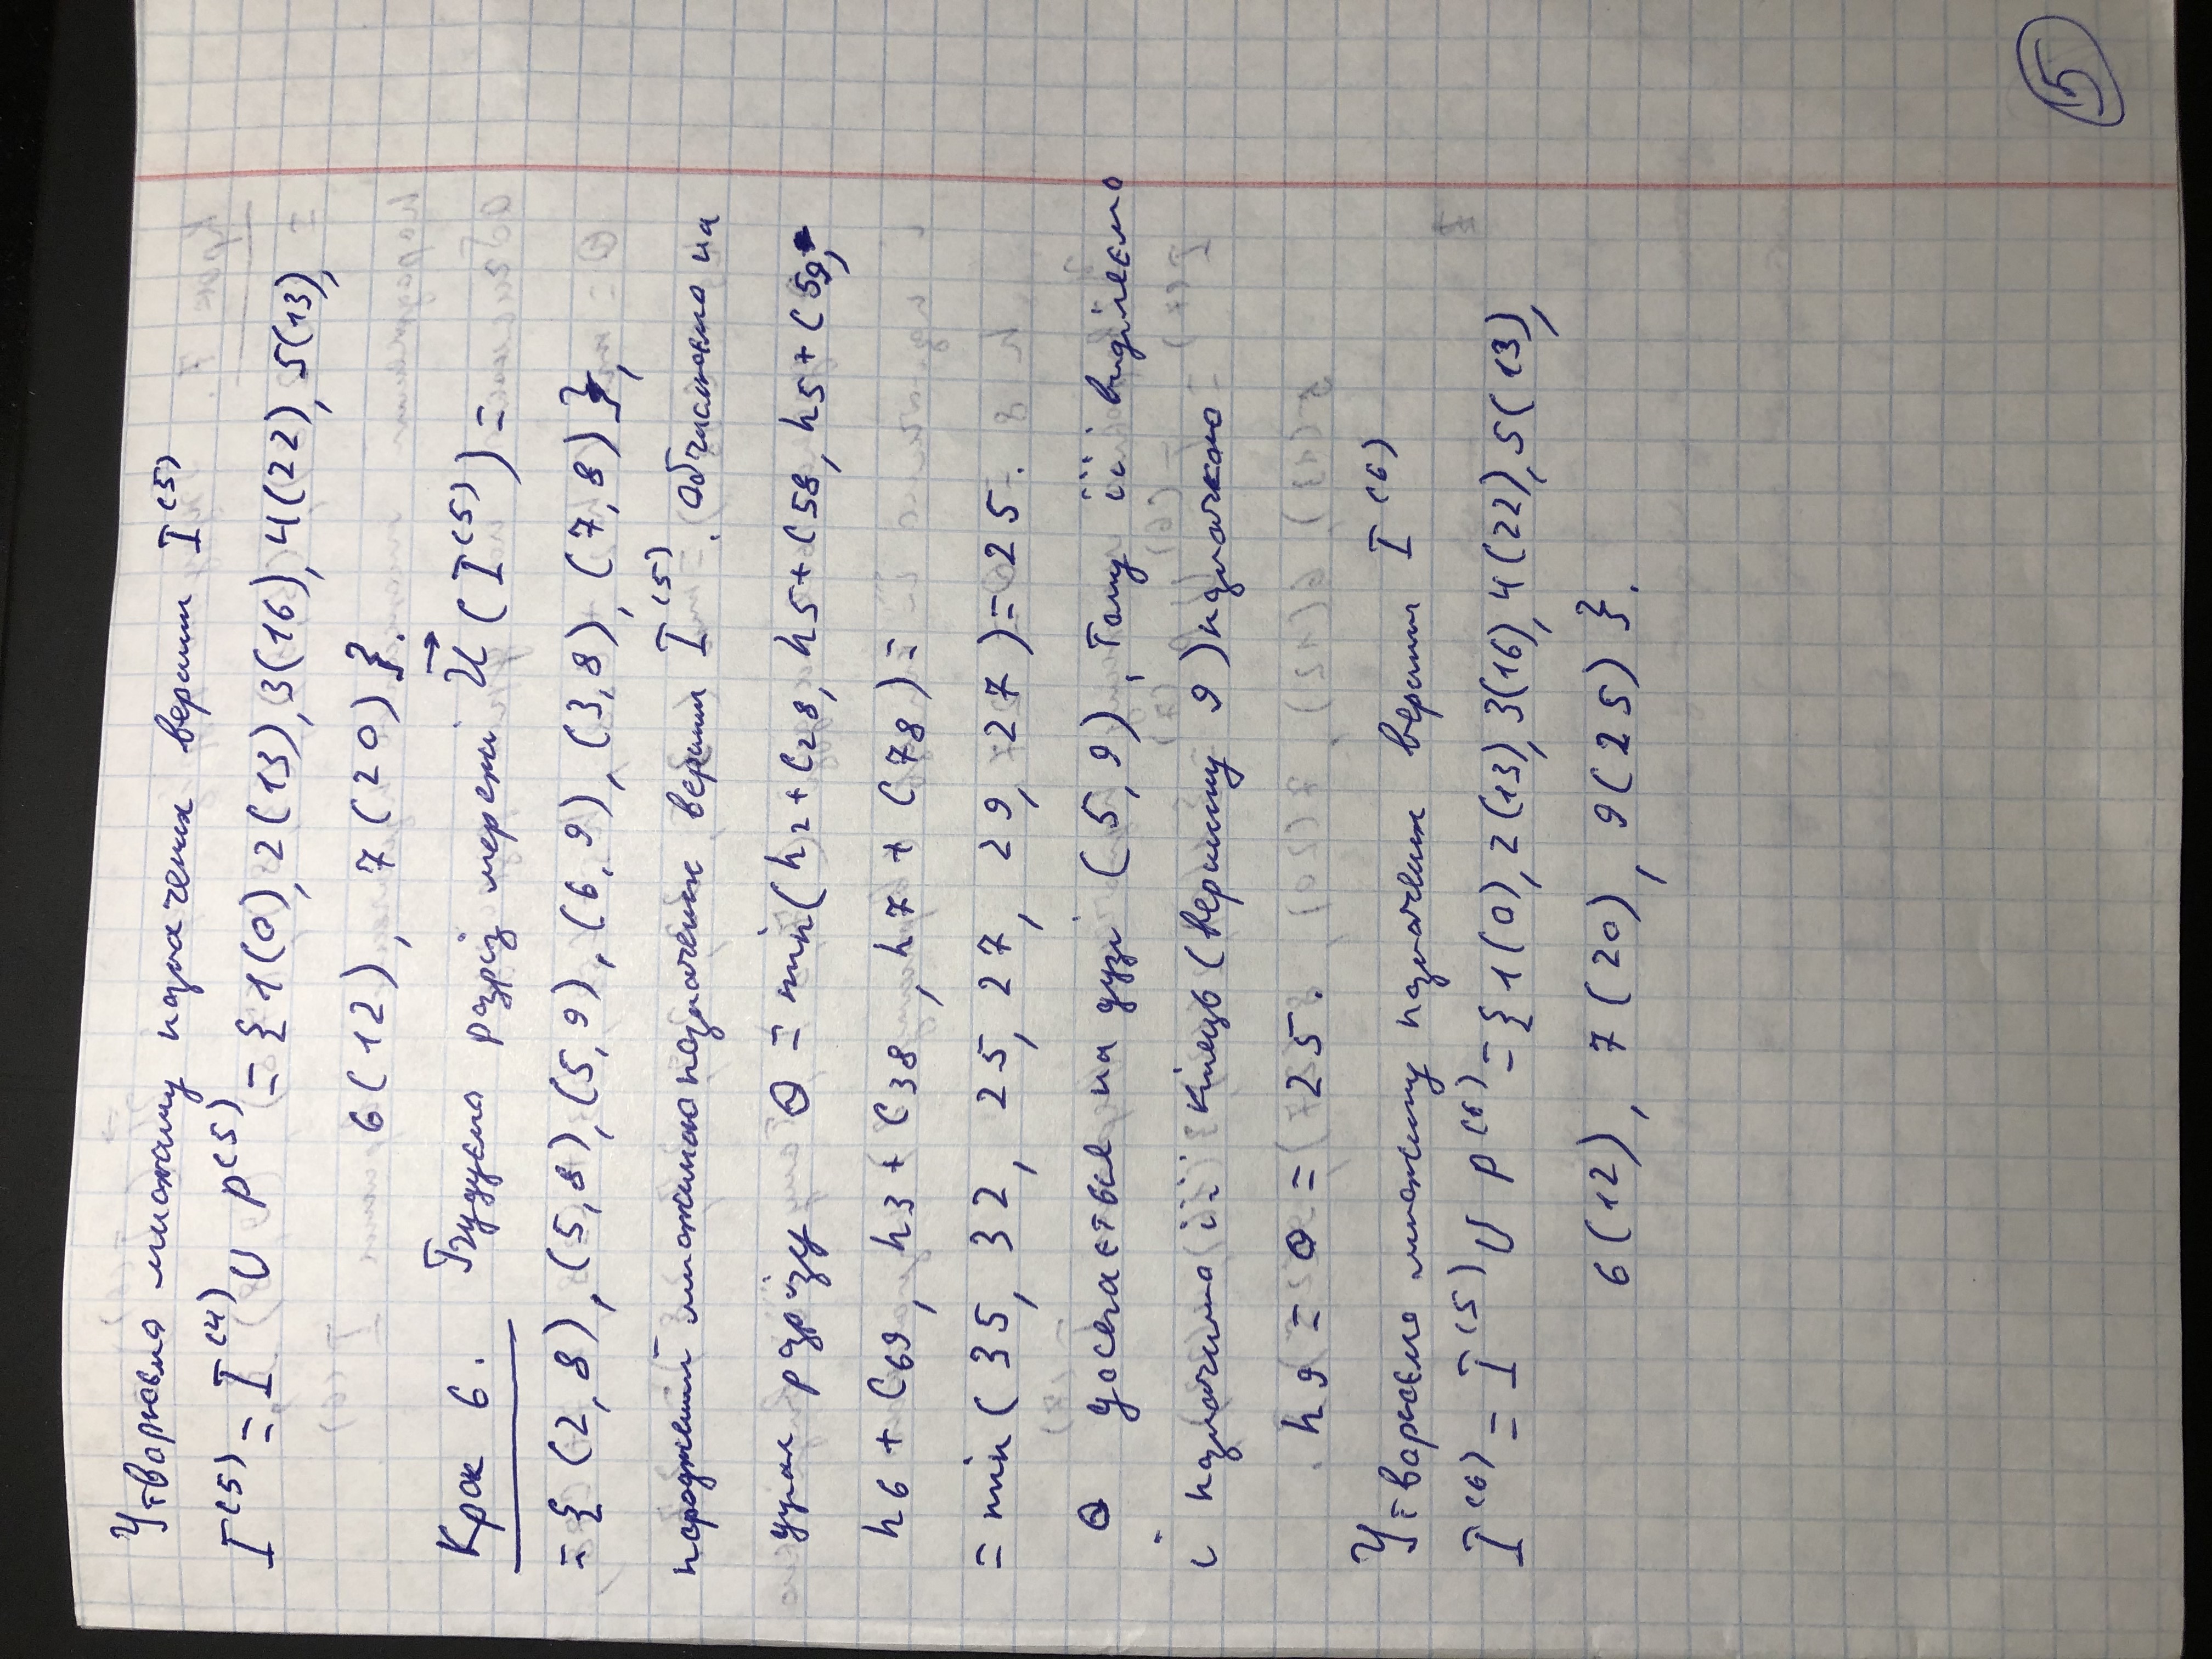 Утворюємо множину позначених вершин I⁽⁵⁾
I⁽⁵⁾ = I⁽⁴⁾ ∪ P⁽⁵⁾ = {1(0), 2(13), 3(16), 4(22), 5(13),
6(12), 7(20)}.
Крок 6. Будуємо розріз мережі U⃗(I⁽⁵⁾) =
= {(2,8), (5,8), (5,9), (6,9), (3,8), (7,8)},
породжений множиною позначених вершин I⁽⁵⁾. Обчислюємо на
дугах розрізу θ = min(h2 + C28, h5 + C58, h5 + C59,
h6 + C69, h3 + C38, h7 + C78) =
= min(35, 32, 25, 27, 29, 27) = 25.
θ досягається на дузі (5,9), тому її виділяємо
і позначимо її кінець (вершину 9) позначкою
h9 = θ = 25.
Утворюємо множину позначених вершин I⁽⁶⁾
I⁽⁶⁾ = I⁽⁵⁾ ∪ P⁽⁶⁾ = {1(0), 2(13), 3(16), 4(22), 5(13),
6(12), 7(20), 9(25)}.
5